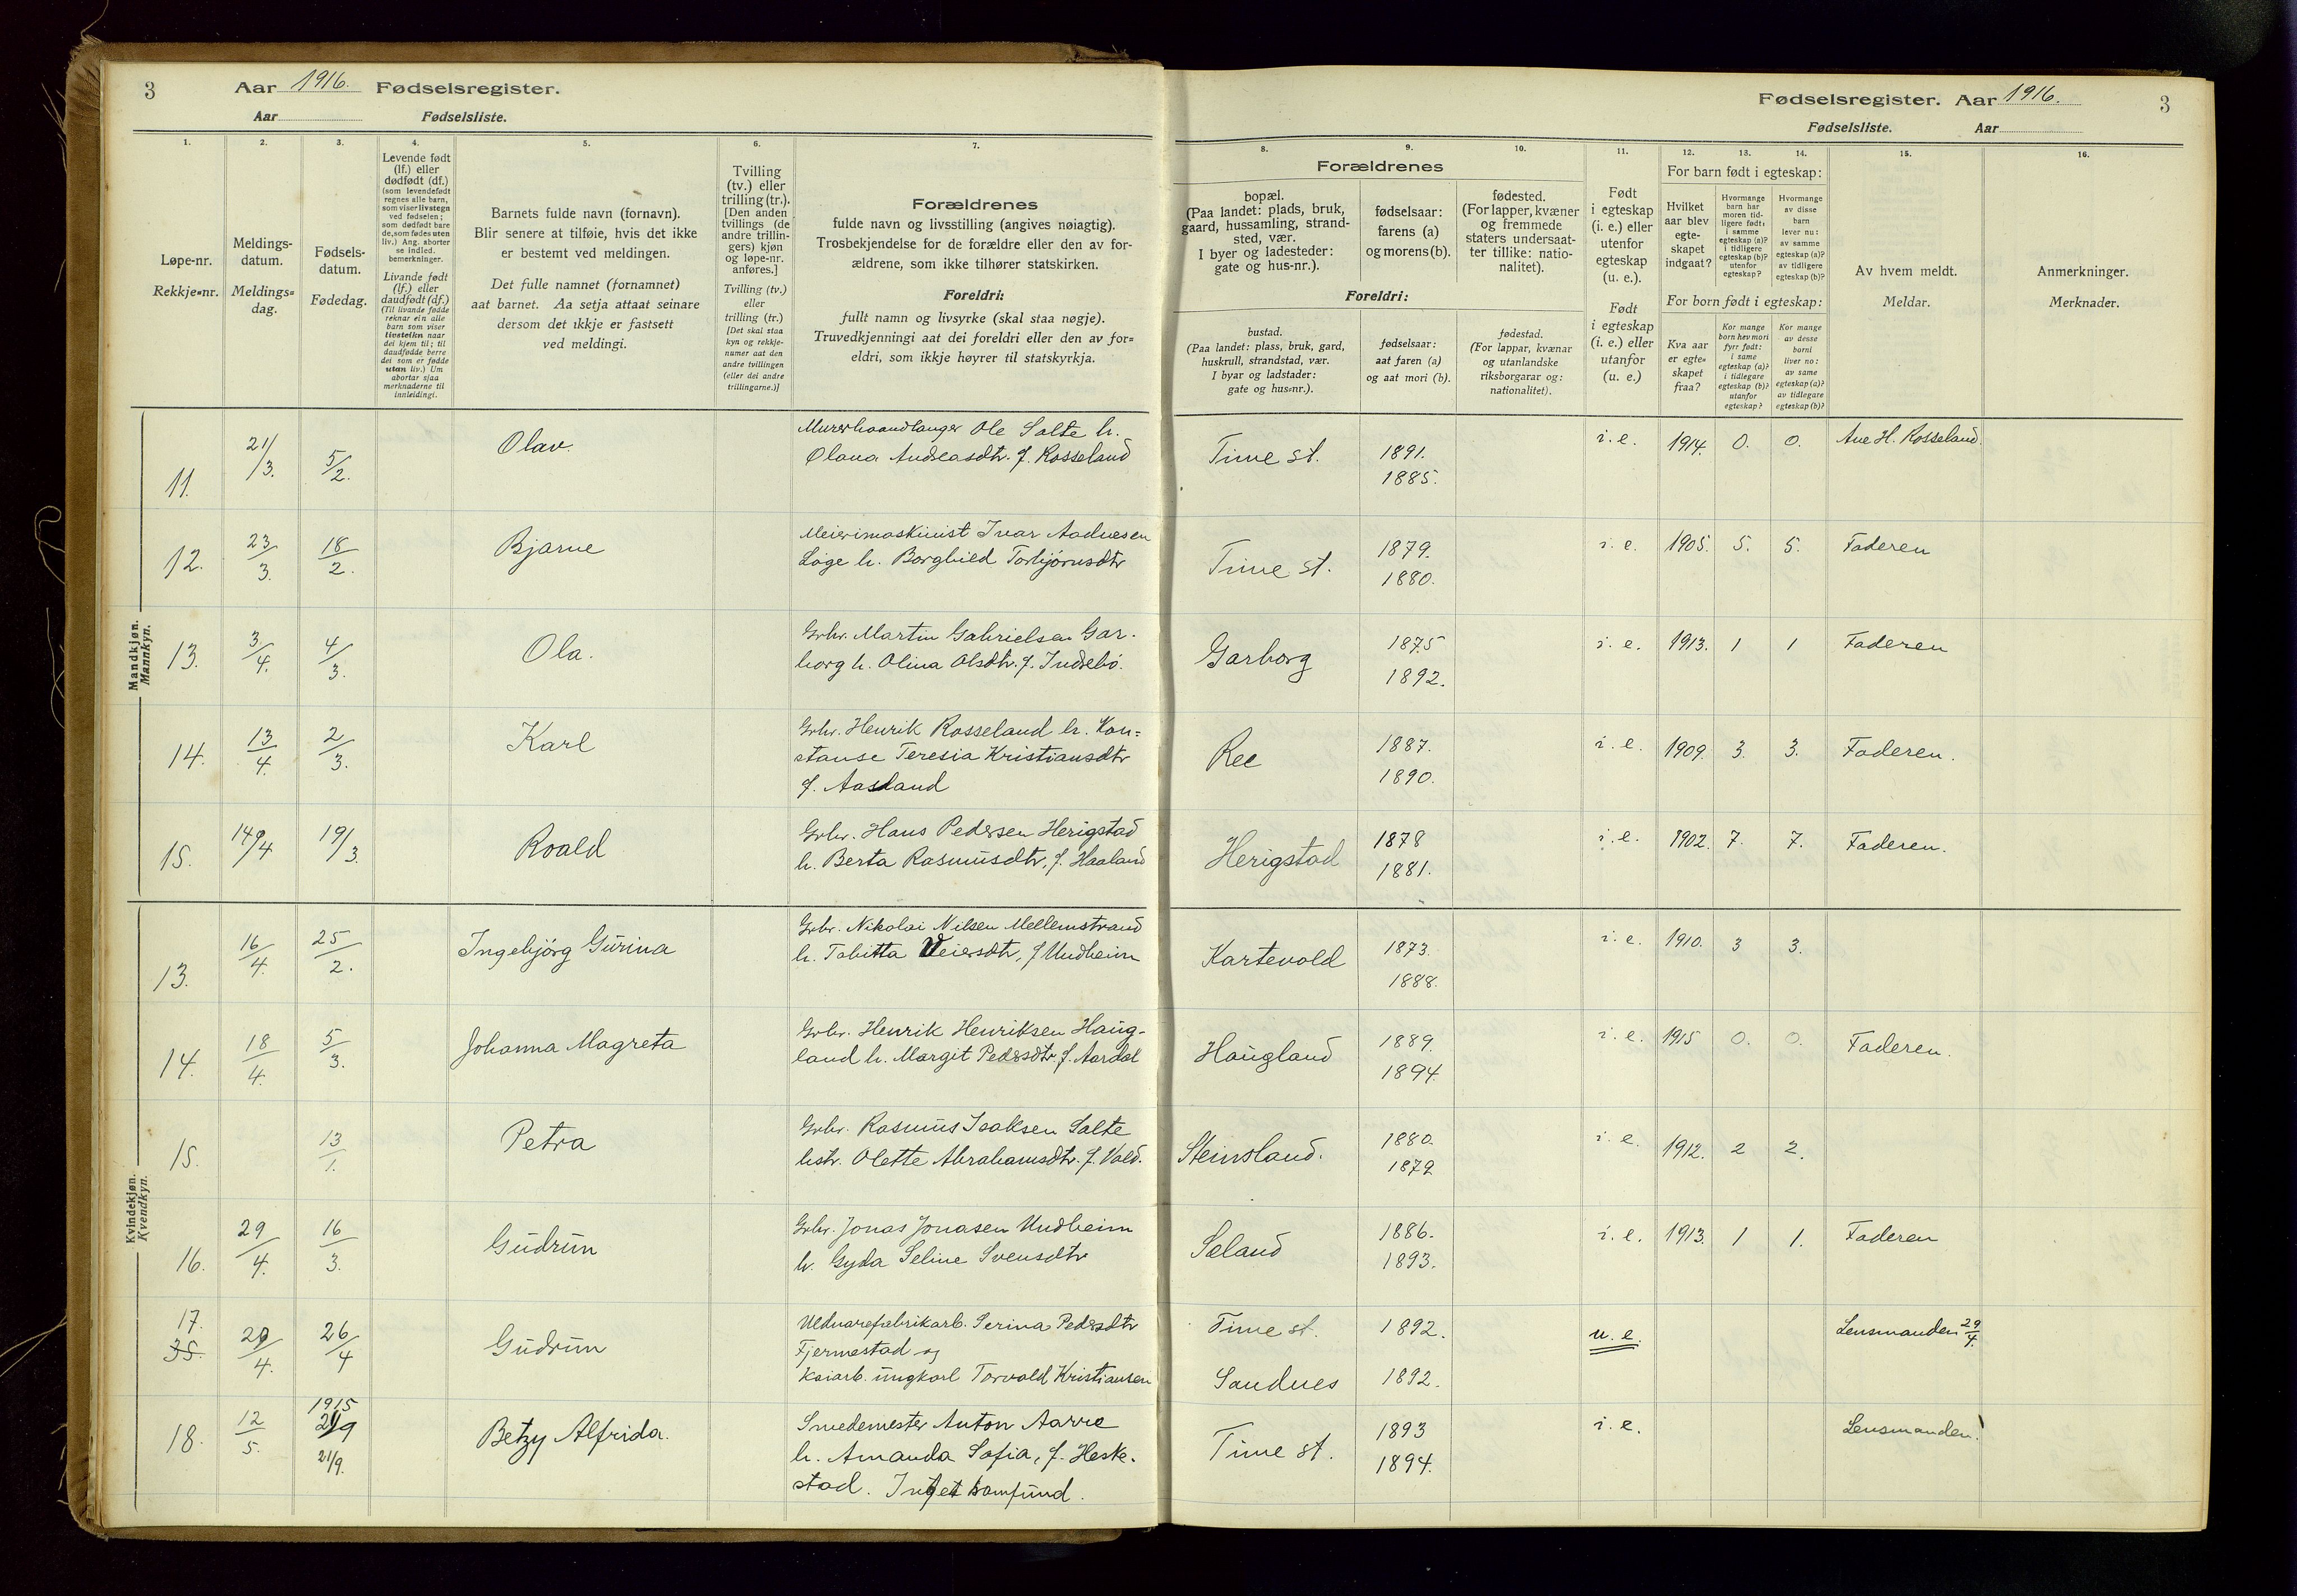 3 Aar 1916. Fødselsregister.
Aar Fødselsliste.
1.
Løpe-nr.
Rekkje-nr.
2.
Meldings-
datum.
Meldings-
dag.
3.
Fødsels-
datum.
Fødedag.
4.
Levende født
(lf.) eller
dødfødt (df.)
(som levendefødt
regnes alle barn,
som viser livstegn
ved fødselen;
som dødfødt bare
de, som fødes uten
liv.) Ang. aborter
se indled.
bemerkninger.
Livande født
(lf.) eller
daudfødt (df.)
(Til livande fødde
reknar ein alle
barn som viser
livsteikn naar
dei kjem til; til
daudfødde berre
dei som er fødde
utan liv.) Um
abortar sjaa
merknaderne til
innleidingi.
5.
Barnets fulde navn (fornavn).
Blir senere at tilføie, hvis det ikke
er bestemt ved meldingen.
Det fulle namnet (fornamnet)
aat barnet. Aa setja attaat seinare
dersom det ikkje er fastsett
ved meldingi.
6.
Tvilling
(tv.) eller
trilling (tr.).
[Den anden
tvillings (de
andre trillin-
gers) kjøn
og løpe-nr.
anføres.]
Tvilling (tv.)
eller
trilling (tr.)
[Det skal staa
kyn og rekkje-
numer aat den
andre tvillingen
(eller dei andre
trillingarne.)]
7.
Forældrenes
fulde navn og livsstilling (angives nøiagtig).
Trosbekjendelse for de forældre eller den av for-
ældrene, som ikke tilhører statskirken.
Foreldri:
fullt namn og livsyrke (skal staa nøgje).
Truvedkjenningi aat dei foreldri eller den av for-
eldri, som ikkje høyrer til statskyrkja.
Mandkjøn.
Mannkyn.
11. 21/3. 5/2. Olav. Murerhaandlanger Ole Salte h.
Olana Andreasdtr. f. Rosseland
12. 23/3. 18/2. Bjarne Meierimaskinist Ivar Aadnesen
Løge h. Borghild Torbjørnsdtr
13. 3/4. 4/3. Ola. Grbr. Martin Gabrielsen Gar-
borg h. Olina Olsdtr. f. Indrebø.
14. 13/4. 2/3. Karl Grbr. Henrik Rosseland h. Kon-
stanse Teresia Kristiansdtr
f. Aasland
15. 14/4 19/3. Roald Grbr. Hans Pedersen Herigstad
h. Berta Rasmusdtr, f. Haaland
Kvindekjøn.
Kvendkyn.
13. 16/4. 25/2. Ingebjørg Gurina Grbr. Nikolai Nilsen Mellemstrand
h. Tabitta Veiersdtr, f Undheim
14. 18/4. 5/3. Johanna Magreta Grbr. Henrik Henriksen Haug-
land h. Margit Pedersdtr. f. Aardal
15. 13/1. Petra Grbr. Rasmus Isaksen Salte
hstr. Olette Abrahamsdtr. f. Vold.
16. 29/4. 16/3. Gudrun Grbr. Jonas Jonasen Undheim
h. Gyda Seline Svensdtr
17.
35. 29/4. 26/4 Gudrun Uldvarefabrikarb. Serina Pedersdtr
Fjermestad og
Kaiarb. ungkarl Torvald Kristiansen
18. 12/5. 1915
21/9
21/9. Betzy Alfrida. Smedemester Anton Aarre
h. Amanda Sofia, f. Heske-
stad. Intet samfund.
Fødselsregister. Aar 1916. 3
Fødselsliste. Aar
Forældrenes
8.
bopæl.
(Paa landet: plads, bruk,
gaard, hussamling, strand-
sted, vær.
I byer og ladesteder:
gate og hus-nr.).
9.
fødselsaar:
farens (a)
og morens (b).
10.
fødested.
(For lapper, kvæner
og fremmede
staters undersaat-
ter tillike: natio-
nalitet).
Foreldri:
bustad.
(Paa landet: plass, bruk, gard,
huskrull, strandstad, vær.
I byar og ladstader:
gate og hus-nr.).
fødselsaar:
aat faren (a)
og aat mori (b).
fødestad.
(For lappar, kvænar
og utanlandske
riksborgarar og:
nationalitet).
11.
Født
i egteskap
(i. e.) eller
utenfor
egteskap
(u. e.).
Født
i egteskap
(i. e.) eller
utanfor
(u. e.)
12. 13. 14.
For barn født i egteskap:
Hvilket
aar blev
egte-
skapet
indgaat?
Hvormange
barn har
moren tid-
ligere født:
i samme
egteskap (a)?
i tidligere
egteskap (b)?
utenfor
egteskap?
Hvormange
av disse
barn
lever nu:
av samme
egteskap (a)?
av tidligere
egteskap (b)?
For born født i egteskap:
Kva aar
er egte-
skapet
fraa?
Kor mange
born hev mori
fyrr født:
i same
egteskap (a)?
i tidlegare
egteskap (b)?
utanfor
egteskap?
Kor mange
av desse
borni
liver no:
av same
egteskap (a)?
av tidlegare
egteskap (b)?
15.
Av hvem meldt.
Meldar.
16.
Anmerkninger.
Merknader.
Time st. 1891.
1885. i. e. 1914. 0. 0. Ane H. Rosseland.
Time st. 1879.
1880. i. e. 1905. 5. 5. Faderen
Garborg 1875
1892. i. e. 1913. 1 1 Faderen
Ree 1887.
1890. i. e. 1909. 3. 3. Faderen.
Herigstad 1878
1881. i. e. 1902. 7. 7. Faderen.
Kartevold 1873.
1888. i. e. 1910. 3 3.
Haugland 1889.
1894. i. e. 1915 0. 0. Faderen.
Steinsland. 1880.
1879 i. e. 1912. 2 2.
Seland 1886.
1893. i. e. 1913. 1 1. Faderen
Time st. 1892. u. e. Lensmanden 29/4.
Sandnes 1892.
Time st. 1893
1894. i. e. Lensmanden.